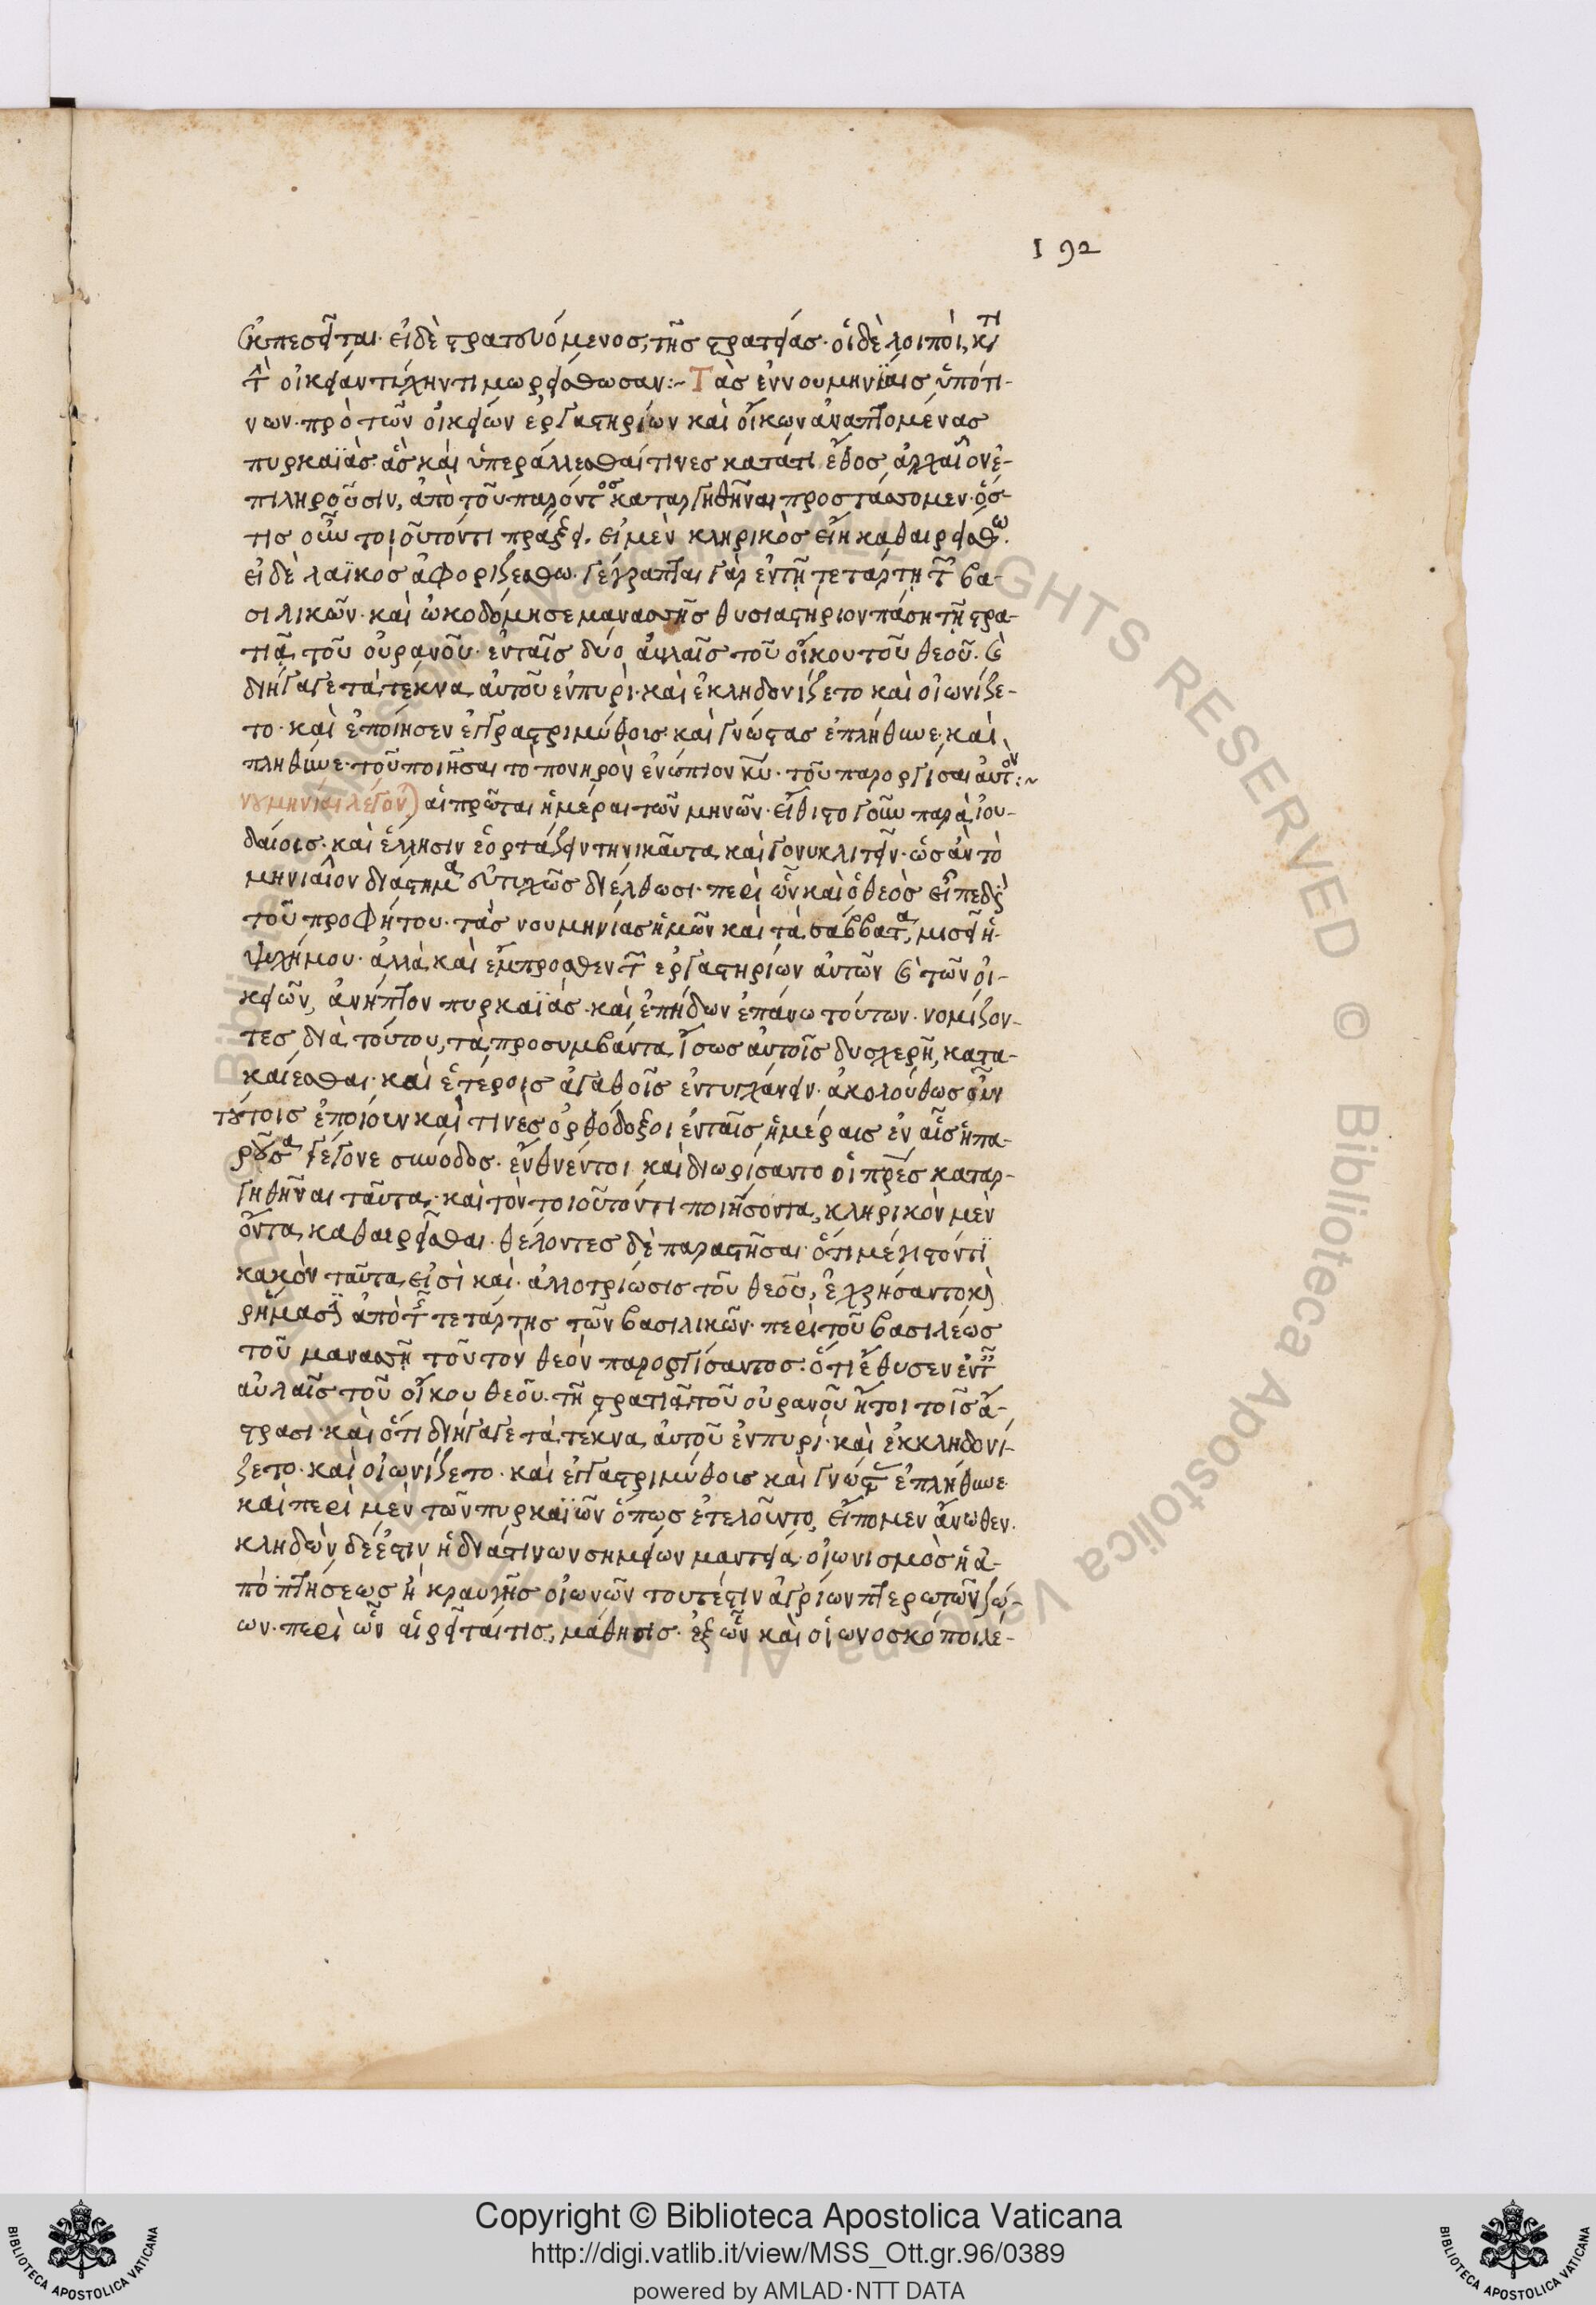 192
ἐκπεσεῖται· εἰ δὲ στρατευόμενος, τῆς στρατείας· οἱ δὲ λοιποὶ, κατὰ
τὴν οἰκείαν τύχην τιμωρείσθωσαν:~ Τὰς ἐν νουμηνίαις ὑπό τι-
νων· πρὸ τῶν οἰκείων ἐργαστηρίων καὶ οἴκων ἀναπτομένας
πυρκαϊὰς· ἃς καὶ ὑπεράλλεσθαί τινες κατά τι ἔθος ἀρχαῖον ἐ-
πιχειροῦσιν, ἀπὸ τοῦ παρόντος καταργηθῆναι προστάσσομεν· ὅσ-
τις οὖν τοιοῦτόν τι πράξει. εἰ μὲν κληρικὸς εἴη καθαιρείσθω.
εἰ δὲ λαϊκὸς ἀφοριζέσθω· γέγραπται γὰρ ἐν τῇ τετάρτῃ τῶν βα-
σιλικῶν· καὶ ὠκοδόμησε μανασσῆς θυσιαστήριον πάσῃ τῇ στρα-
τιᾷ τοῦ οὐρανοῦ· ἐν ταῖς δύο αὐλαῖς τοῦ οἴκου τοῦ θεοῦ. καὶ
διήγαγε τὰ τέκνα αὐτοῦ ἐν πυρὶ· καὶ ἐκληδονίζετο καὶ οἰωνίζε-
το· καὶ ἐποίησεν ἐγγραστριμύθοις· καὶ γνώστας ἐπλήθυνε· καὶ
πληθύνε· τοῦ ποιῆσαι τὸ πονηρὸν ἐνώπιον κυ· τοῦ παροργίσαι αὐτόν:~
νουμηνίαι λέγονται αἱ πρῶται ἡμέραι τῶν μηνῶν· εἴθιστο γοῦν παρὰ ἰου-
δαίοις· καὶ ἕλλησιν ἑορτάζειν τηνικαῦτα καὶ γονυκλιτεῖν· ὡς ἂν τὸ
μηνιαῖον διάστημα εὐτυχῶς διέλθωσι· περὶ ὧν καὶ ὁ θεὸς εἶπε διὰ
τοῦ προφήτου· τὰς νουμηνίας ἡμῶν καὶ τὰ σάββατα, μισεῖ ἡ
ψυχή μου· ἀλλὰ καὶ ἔμπροσθεν τῶν ἐργαστηρίων αὐτῶν καὶ τῶν οἰ-
κειῶν, ἀνῆπτον πυρκαϊάς· καὶ ἐπήδων ἐπάνω τούτων· νομίζον-
τες διὰ τούτου, τὰ προσυμβάντα ἴσως αὐτοῖς δυσχερῆ, κατα-
καίεσθαι· καὶ ἑτέροις ἀγαθοῖς ἐντυγχάνειν· ἀκολούθως οὖν
τούτοις ἐποίουν καὶ τινὲς ὀρθόδοξοι ἐν ταῖς ἡμέραις ἐν αἷς ἡ πα-
ροῦσα γέγονε σύνοδος· ἔνθεν τοι καὶ διωρίσαντο οἱ πρες καταρ-
γηθῆναι ταῦτα· καὶ τὸν τοιοῦτόν τι ποιήσοντα, κληρικὸν μὲν
ὄντα καθαιρεῖσθαι· θέλοντες δὲ παραστῆσαι· ὅτι μέγιστόν τι
κακὸν ταῦτα εἰσὶ καὶ· ἀλλοτρίωσις τοῦ θεοῦ, ἐχρήσαντο καὶ
ρήμασι ἀπὸ τῆς τετάρτης τῶν βασιλικῶν· περὶ τοῦ βασιλέως
τοῦ μανασσῆ τοῦ τὸν θεὸν παροργίσαντος· ὅτι ἔθυσεν ἐν ταῖς
αὐλαῖς τοῦ οἴκου θεοῦ· τῇ στρατιᾷ τοῦ οὐρανοῦ ἤτοι τοῖς ἄ-
στρασι· καὶ ὅτι διήγαγε τὰ τέκνα αὐτοῦ ἐν πυρί· καὶ ἐκκληδονί-
ζετο· καὶ οἰωνίζετο· καὶ ἐγγαστριμύθοις καὶ γνώστας ἐπλήθυνε·
καὶ περὶ μὲν τῶν πυρκαϊῶν ὅπως ἐτελοῦντο, εἴπομεν ἄνωθεν·
κληδὼν δέ ἐστιν ἡ διά τινων σημείων μαντεία· οἰωνισμὸς ἡ ἀ-
πὸ πτήσεως ἢ κραυγῆς οἰωνῶν τουτέστιν ἀγρίων πτερωτῶν ζώ-
ων· περὶ ὧν αἱρεῖταί τις, μάθησις· ἐξ ὧν καὶ οἰωνοσκόποι λέ-
Copyright © Biblioteca Apostolica Vaticana
http://digi.vatlib.it/view/MSS_Ott.gr.96/0389
powered by AMLAD·NTT DATA